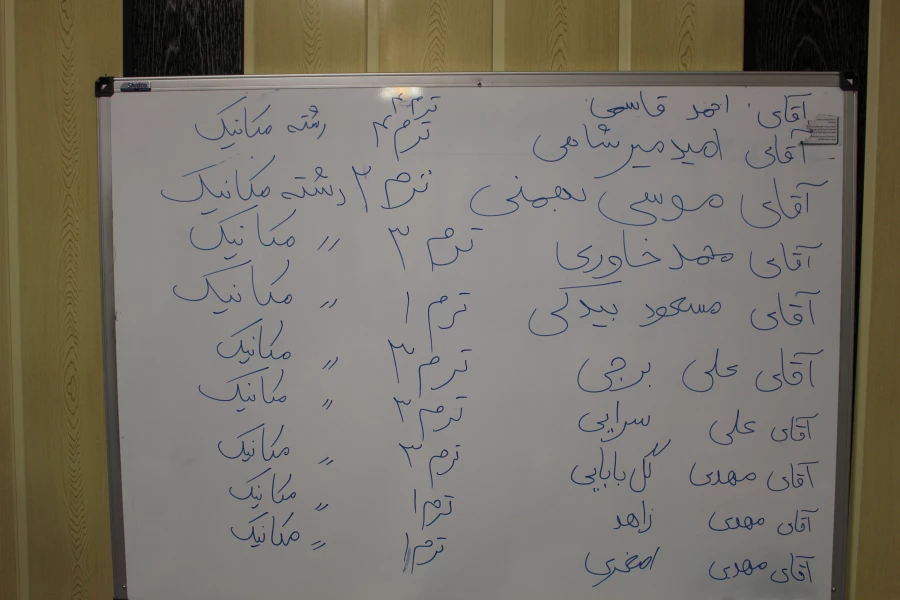 آقای احمد قاسمی ترم ۳ رشته مکانیک
آقای امید میرشاهی ترم ۴
آقای موسی بهمنی ترم ۲ رشته مکانیک
آقای محمد خاوری ترم ۳ 〃 مکانیک
آقای مسعود بیدکی ترم ۱ 〃 مکانیک
آقای علی برجی ترم ۳ 〃 مکانیک
آقای علی سرایی ترم ۳ 〃 مکانیک
آقای مهدی گل بابایی ترم ۳ 〃 مکانیک
آقای مهدی زاهد ترم ۱ 〃 مکانیک
آقای مهدی اصغری ترم ۱ 〃 مکانیک